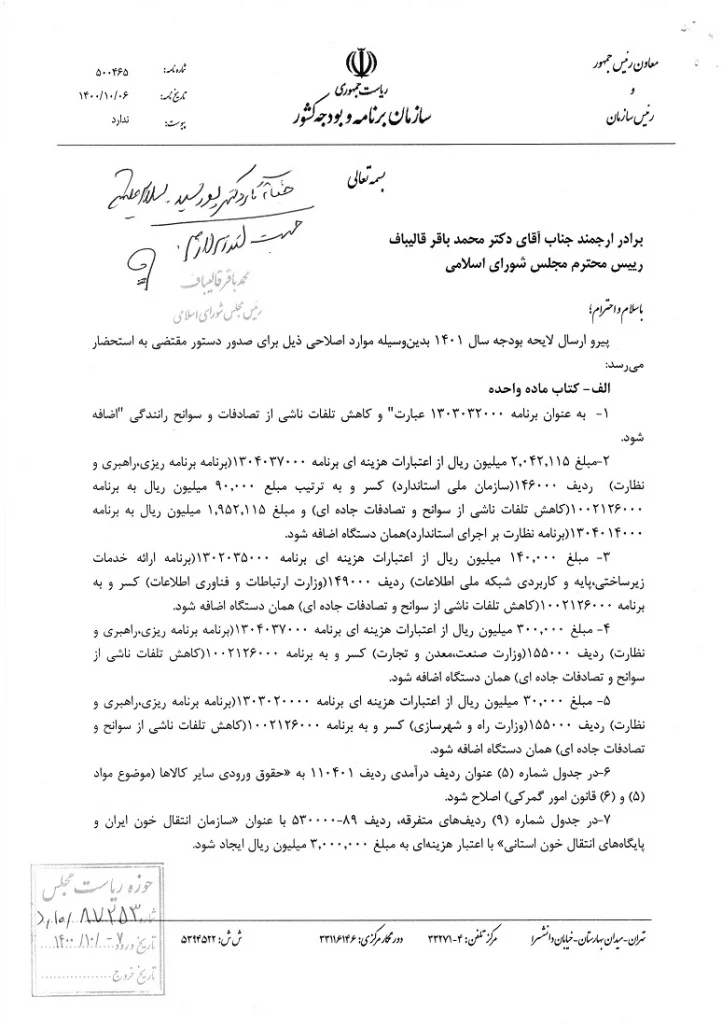 معاون رئیس جمهور
و
رئیس سازمان
ریاست جمهوری
سازمان برنامه و بودجه کشور
شماره نامه: ۵۰۰۴۶۵
تاریخ نامه: ۱۴۰۰/۱۰/۰۶
پیوست: ندارد
بسمه تعالی
جناب آقای دکتر
جهت
محمد باقر قالیباف
رئیس مجلس شورای اسلامی
برادر ارجمند جناب آقای دکتر محمد باقر قالیباف
رییس محترم مجلس شورای اسلامی
با سلام و احترام؛
پیرو ارسال لایحه بودجه سال ۱۴۰۱ بدین‌وسیله موارد اصلاحی ذیل برای صدور دستور مقتضی به استحضار
می‌رسد:
الف- کتاب ماده واحده
۱- به عنوان برنامه ۱۳۰۳۰۳۲۰۰۰ عبارت" و کاهش تلفات ناشی از تصادفات و سوانح رانندگی "اضافه
شود.
۲-مبلغ ۲,۰۴۲,۱۱۵ میلیون ریال از اعتبارات هزینه ای برنامه ۱۳۰۴۰۳۷۰۰۰(برنامه برنامه ریزی،راهبری و
نظارت) ردیف ۱۴۶۰۰۰(سازمان ملی استاندارد) کسر و به ترتیب مبلغ ۹۰,۰۰۰ میلیون ریال به برنامه
۱۰۰۲۱۲۶۰۰۰(کاهش تلفات ناشی از سوانح و تصادفات جاده ای) و مبلغ ۱,۹۵۲,۱۱۵ میلیون ریال به برنامه
۱۳۰۴۰۱۴۰۰۰(برنامه نظارت بر اجرای استاندارد)همان دستگاه اضافه شود.
۳- مبلغ ۱۴۰,۰۰۰ میلیون ریال از اعتبارات هزینه ای برنامه ۱۳۰۲۰۳۵۰۰۰(برنامه ارائه خدمات
زیرساختی،پایه و کاربردی شبکه ملی اطلاعات) ردیف ۱۴۹۰۰۰(وزارت ارتباطات و فناوری اطلاعات) کسر و به
برنامه ۱۰۰۲۱۲۶۰۰۰(کاهش تلفات ناشی از سوانح و تصادفات جاده ای) همان دستگاه اضافه شود.
۴- مبلغ ۳۰۰,۰۰۰ میلیون ریال از اعتبارات هزینه ای برنامه ۱۳۰۴۰۳۷۰۰۰(برنامه برنامه ریزی،راهبری و
نظارت) ردیف ۱۵۵۰۰۰(وزارت صنعت،معدن و تجارت) کسر و به برنامه ۱۰۰۲۱۲۶۰۰۰(کاهش تلفات ناشی از
سوانح و تصادفات جاده ای) همان دستگاه اضافه شود.
۵- مبلغ ۳۰,۰۰۰ میلیون ریال از اعتبارات هزینه ای برنامه ۱۳۰۳۰۲۰۰۰۰(برنامه برنامه ریزی،راهبری و
نظارت) ردیف ۱۵۵۰۰۰(وزارت راه و شهرسازی) کسر و به برنامه ۱۰۰۲۱۲۶۰۰۰(کاهش تلفات ناشی از سوانح و
تصادفات جاده ای) همان دستگاه اضافه شود.
۶-در جدول شماره (۵) عنوان ردیف درآمدی ردیف ۱۱۰۴۰۱ به «حقوق ورودی سایر کالاها (موضوع مواد
(۵) و (۶) قانون امور گمرکی) اصلاح شود.
۷-در جدول شماره (۹) ردیف‌های متفرقه، ردیف ۸۹-۵۳۰۰۰۰ با عنوان «سازمان انتقال خون ایران و
پایگاه‌های انتقال خون استانی» با اعتبار هزینه‌ای به مبلغ ۳,۰۰۰,۰۰۰ میلیون ریال ایجاد شود.
حوزه ریاست مجلس
شماره ۸۷۲۵۳
تاریخ ورود ۱۴۰۰/۱۰/۰۷
تاریخ خروج
تهران-میدان بهارستان-خیابان دانشسرا مرکز تلفن: ۴-۳۳۲۷۱ دورنگار مرکزی: ۳۳۱۱۶۱۴۶ ش ش: ۵۳۹۴۵۲۲